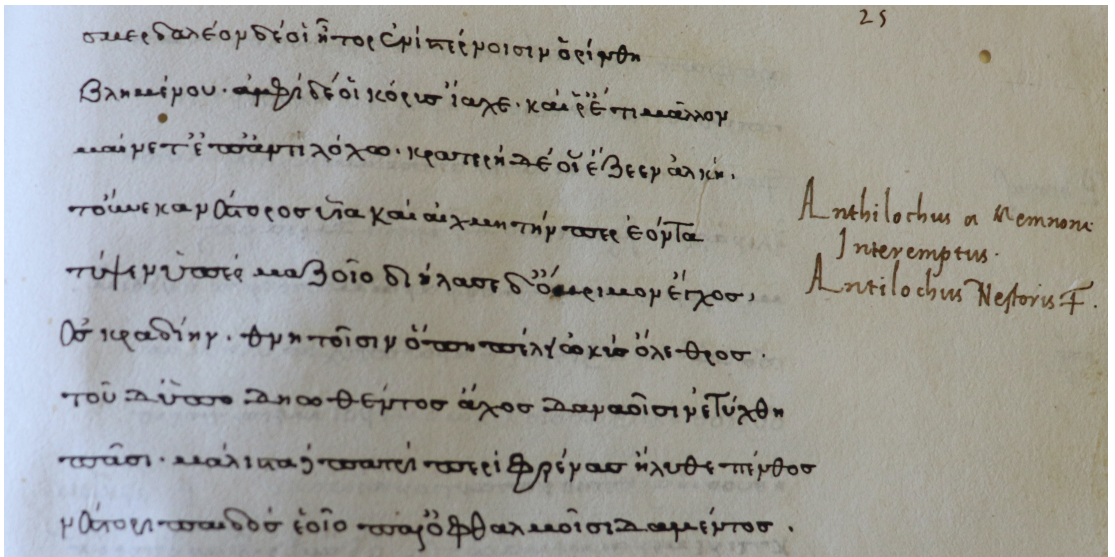 σμερδαλέον δέ οἱ ἦτορ ἐνὶ στέρνοισιν ὀρίνθη
βλημένου· ἀμφὶ δέ οἱ κόρυς ἴαχε· καὶ ῥ' ἔτι μᾶλλον
μαίνετ' ἐπ' ἀντιλόχω· κρατερὴ δέ οἱ ἔζεεν ἀλκή.
τοὔνεκα νέστορος υἷα καὶ αἰχμητήν περ ἐόντα
τύψεν ὑπὲρ μαζοῖο διήλασε δ' ὄβριμον ἔγχος,
ἐς κραδίην· θνητοῖσιν ὅπη πέλει ὠκὺς ὄλεθρος.
τοῦ δ' ὑπο δηωθέντος ἄχος δαναοῖσιν ἐτύχθη
πᾶσι· μάλιστα δὲ πατρὶ περὶ φρένας ἤλυθε πένθος
νέστορι παιδὸς ἑοῖο παρ' ὀφθαλμοῖσι δαμέντος.
25
Anthilochus a Memnone
Interemptus.
Antilochus Nestoris F.